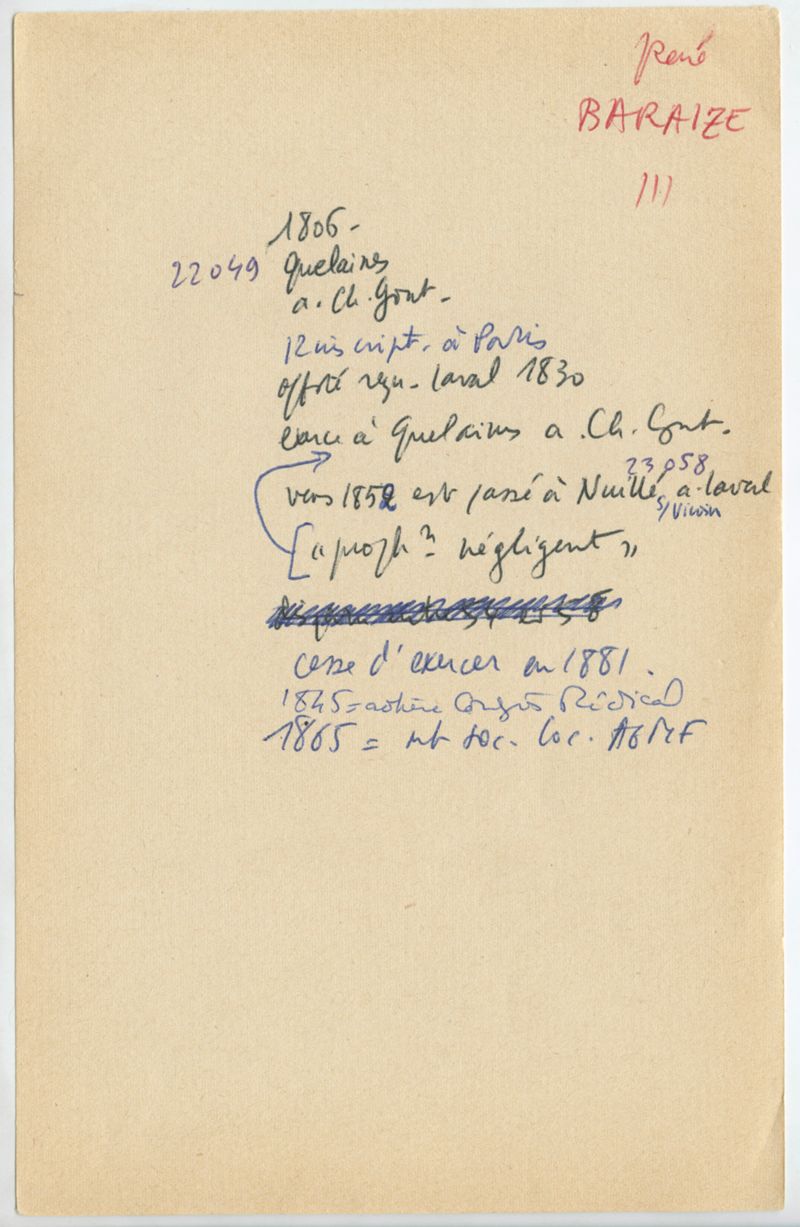 René
BARAIZE
III
1806-
22049 Quelaines
a. Ch. Gont.
12 inscript. à Paris
off. reçu. Laval 1830
exerce à Quelaines a. Ch. Gont.
23058
vers 1852 est passé à Nuillé a. Laval
s/Vicoin
négligent"
cesse d'exercer en 1881.
1845 = adhère Congrès Médical
1865 = soc. loc. AGMF